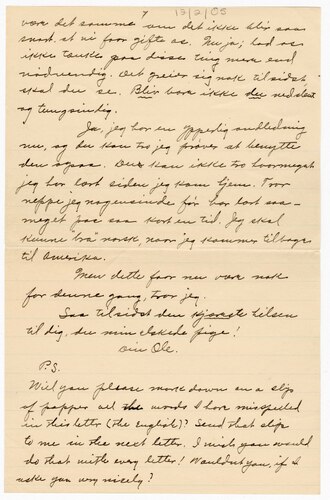 13/2/05
være det samme om det ikke blir saa
snart at vi faar gifte os. Nu ja; lad os
ikke tænke paa disse ting mere end
nødvendig. Det greier sig nok tilsidst
skal du se. Bliv bare ikke du nedslaat
og tungsindig.
Ja, jeg har en ypperlig anledning
nu, og du kan tro jeg prøver at benytte
den ogsaa. Du kan ikke tro hvormeget
jeg har lært siden jeg kom hjem. Tror
neppe jeg nogensinde før har lært saa-
meget paa saa kort en tid. Jeg skal
kunne "bra" norsk naar jeg kommer tilbage
til Amerika.
Men dette faar nu være nok
for denne gang, tror jeg.
Saa tilsidst den kjæreste hilsen
til dig, du min elskede pige!
Din Ole.
P.S.
Will you please mark down on a slip
of papper all the words I have misspeled
in this letter (the English)? Send that slip
to me in the next letter. I wish you would
do that with every letter! Wouldn't you, if I
aske you very nicely?